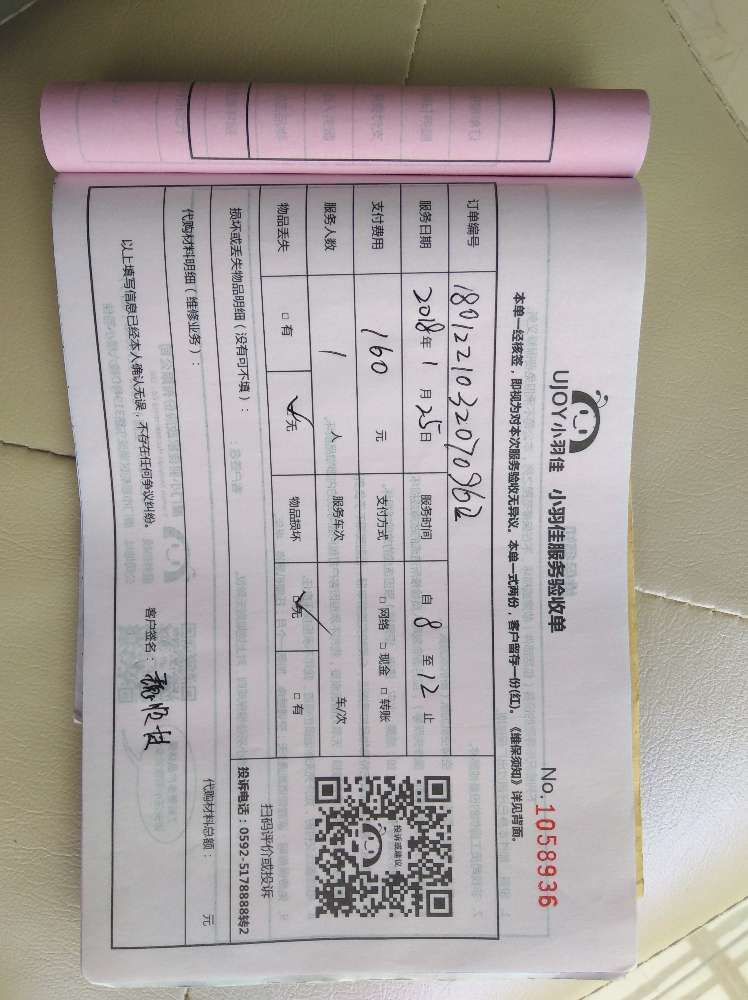 UJOY小羽佳 小羽佳服务验收单
No.1058936
本单一经核签，即视为对本次服务验收无异议。本单一式两份，客户留存一份(红)。《维保须知》详见背面。
订单编号 180122103207096
服务日期 2018年1月25日 服务时间 自8至12止
支付费用 160元 支付方式 □网络 □现金 □转账
服务人数 1人 服务车次 车/次
物品丢失 □有 ✓无 物品损坏 ✓无 □有
损坏或丢失物品明细（没有可不填）：
扫码评价或投诉
投诉或建议
投诉电话：0592-5178888转2
代购材料明细（维修业务）： 代购材料总额： 元
以上填写信息已经本人确认无误，不存在任何争议纠纷。 客户签名：